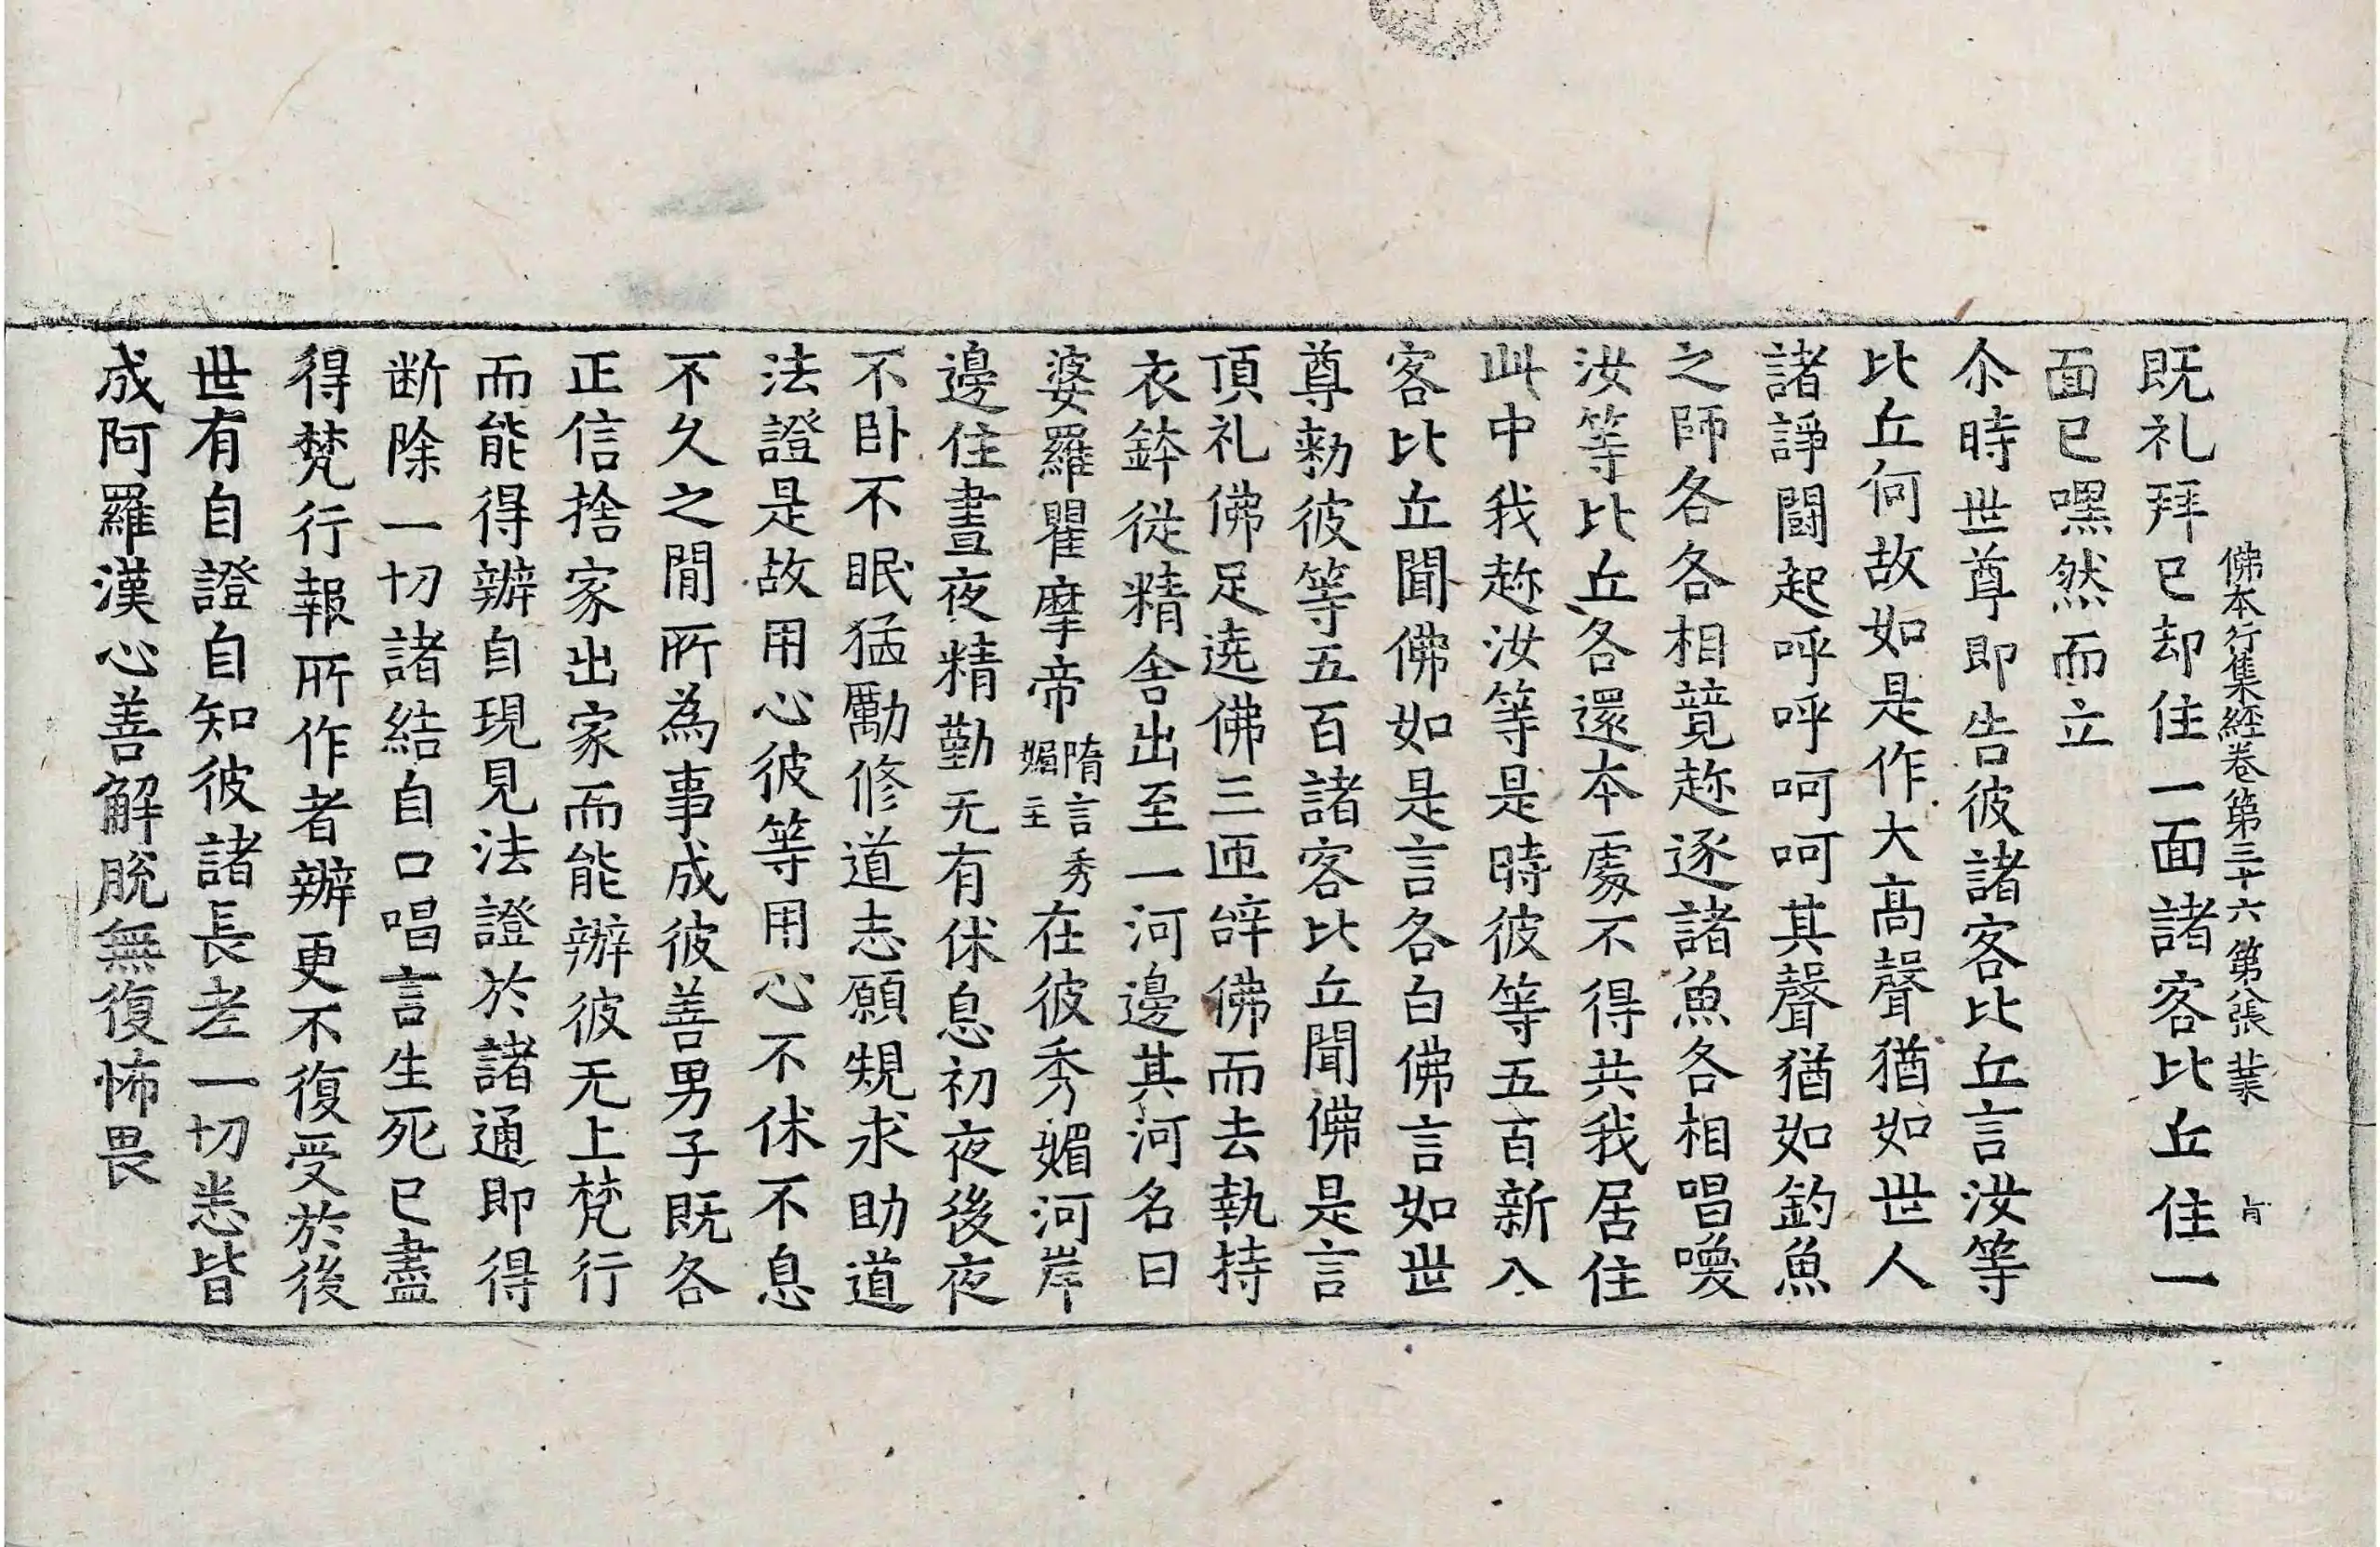 佛本行集經卷第三十六 第八張 業
既礼拜已却住一面諸客比丘住一
面已嘿然而立
尒時世尊即告彼諸客比丘言汝等
比丘何故如是作大高聲猶如世人
諸諍鬪起呼呼呵呵其聲猶如釣魚
之師各各相競趂逐諸魚各相唱喚
汝等比丘各還本處不得共我居住
此中我趂汝等是時彼等五百新入
客比丘聞佛如是言各白佛言如世
尊勑彼等五百諸客比丘聞佛是言
頂礼佛足遶佛三匝辝佛而去執持
衣鉢従精舍出至一河邊其河名曰
婆羅瞿摩帝隋言秀媚主在彼秀媚河岸
邊住晝夜精勤无有休息初夜後夜
不卧不眠猛勵修道志願規求助道
法證是故用心彼等用心不休不息
不久之間所為事成彼善男子既各
正信捨家出家而能辦彼无上梵行
而能得辦自現見法證於諸通即得
断除一切諸結自口唱言生死已盡
得梵行報所作者辦更不復受於後
世有自證自知彼諸長老一切悉皆
成阿羅漢心善解脫無復怖畏